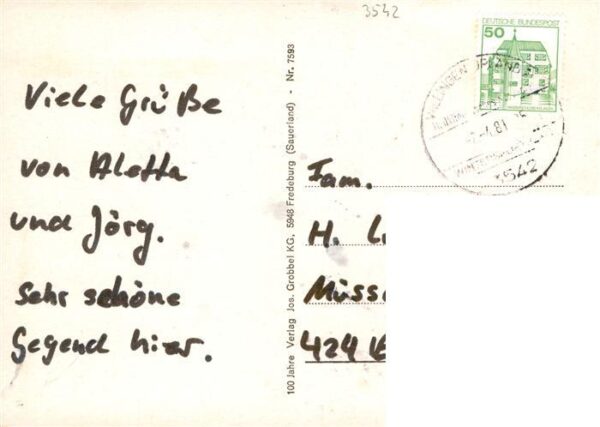 3542
DEUTSCHE BUNDESPOST
50
Viele Grüße
von Aletta
und Jörg.
Sehr schöne
Gegend hier.
100 Jahre Verlag Jos. Grobbel KG, 5948 Fredeburg (Sauerland) - Nr. 7593
3542
Fam.
H. L
Müss
424